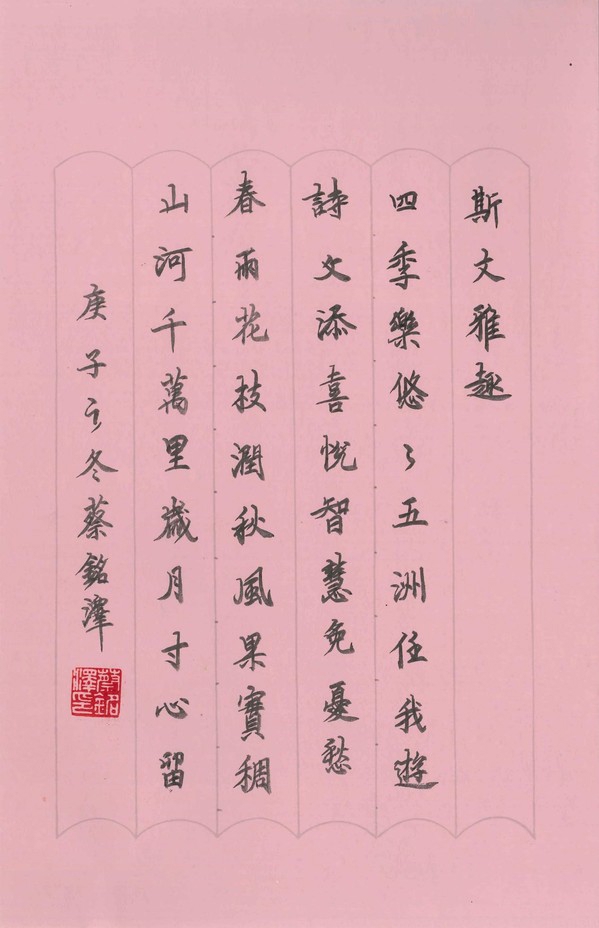 斯文雅趣
四季樂悠々五洲任我遊
詩文添喜悅智慧免憂愁
春雨花枝潤秋風果實稠
山河千萬里歲月寸心留
庚子之冬蔡銘澤
蔡銘澤印